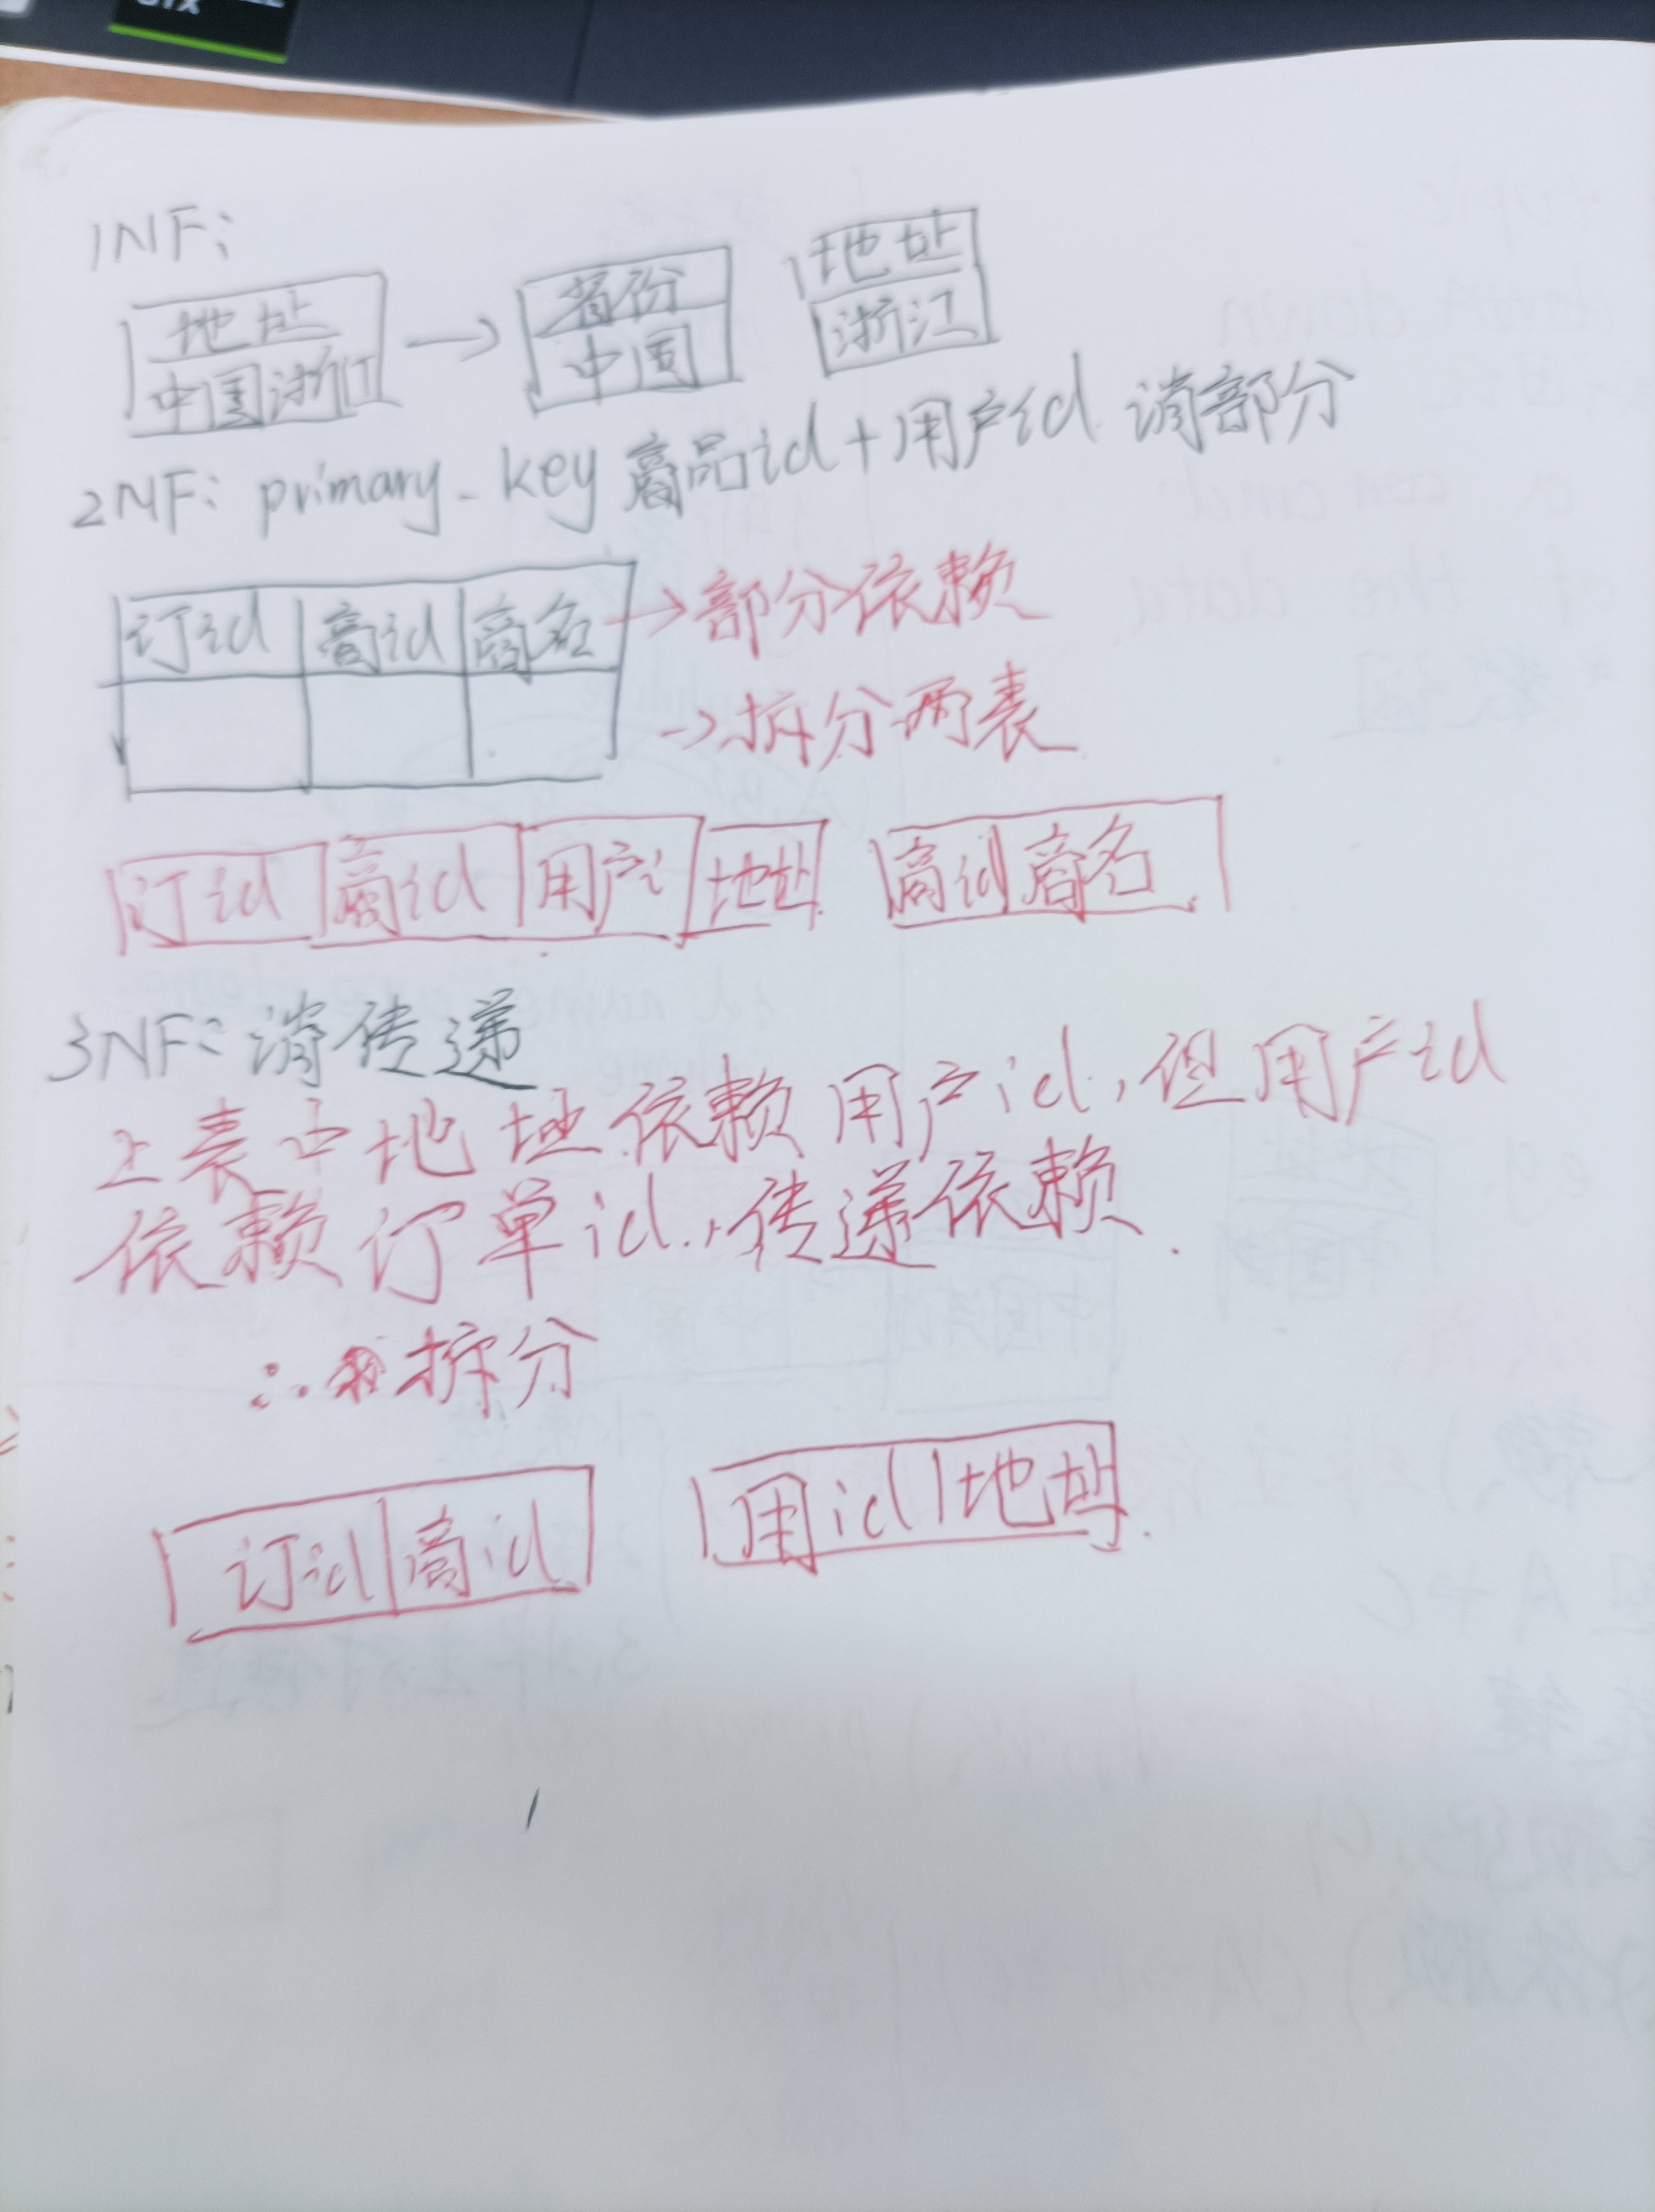 1NF:
地址 省份 地址
中国浙江 → 中国 浙江
2NF: primary-key 商品id+用户id 消部分
订id 商id 商名 →部分依赖
→拆分两表
订id 商id 用户i 地址 商id 商名
3NF: 消传递
上表中地址依赖用户id,但用户id
依赖订单id,传递依赖.
∴ 拆分
订id 商id 用id 地址